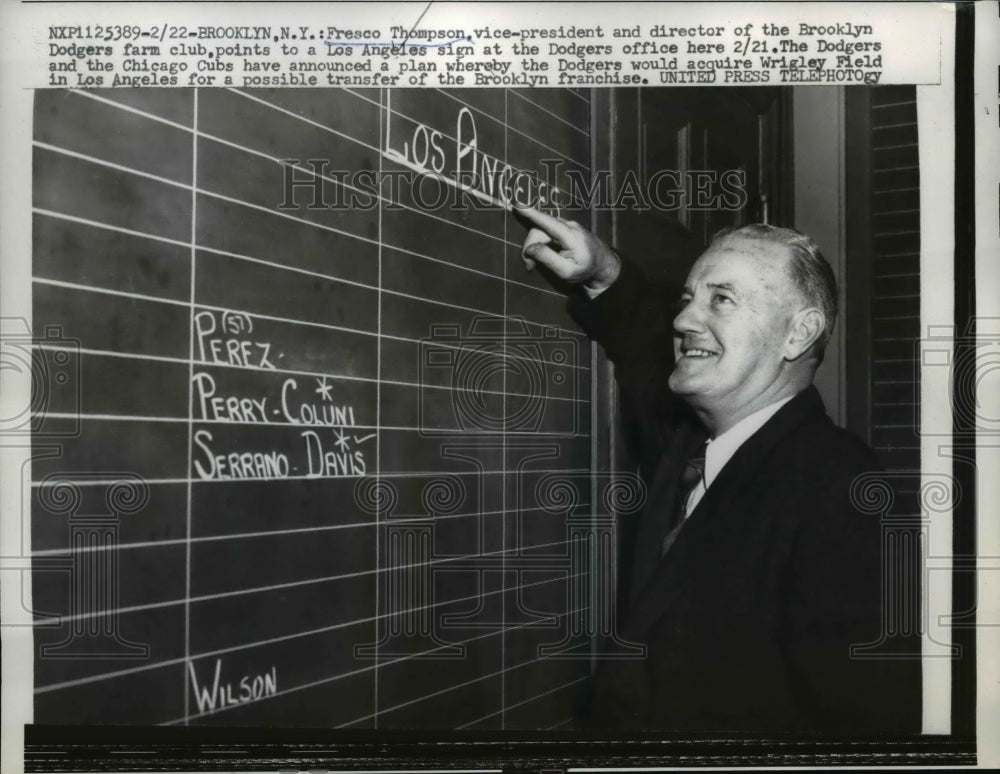 NXP1125389-2/22-BROOKLYN,N.Y.:Fresco Thompson,vice-president and director of the Brooklyn
Dodgers farm club,points to a Los Angeles sign at the Dodgers office here 2/21.The Dodgers
and the Chicago Cubs have announced a plan whereby the Dodgers would acquire Wrigley Field
in Los Angeles for a possible transfer of the Brooklyn franchise. UNITED PRESS TELEPHOTOgy
LOS ANGELES
HISTORIC IMAGES
(ST)
PEREZ-
PERRY-COLUNI*
SERRANO-DAVIS*✓
WILSON